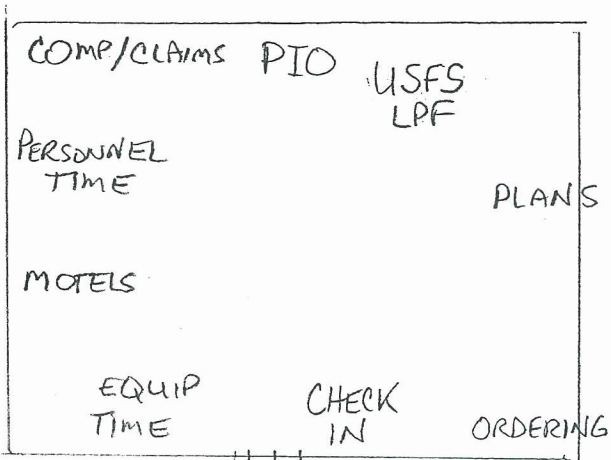 COMP/CLAIMS PIO
USFS
LPF
PERSONNEL
TIME
PLANS
MOTELS
EQUIP
TIME
CHECK
IN
ORDERING